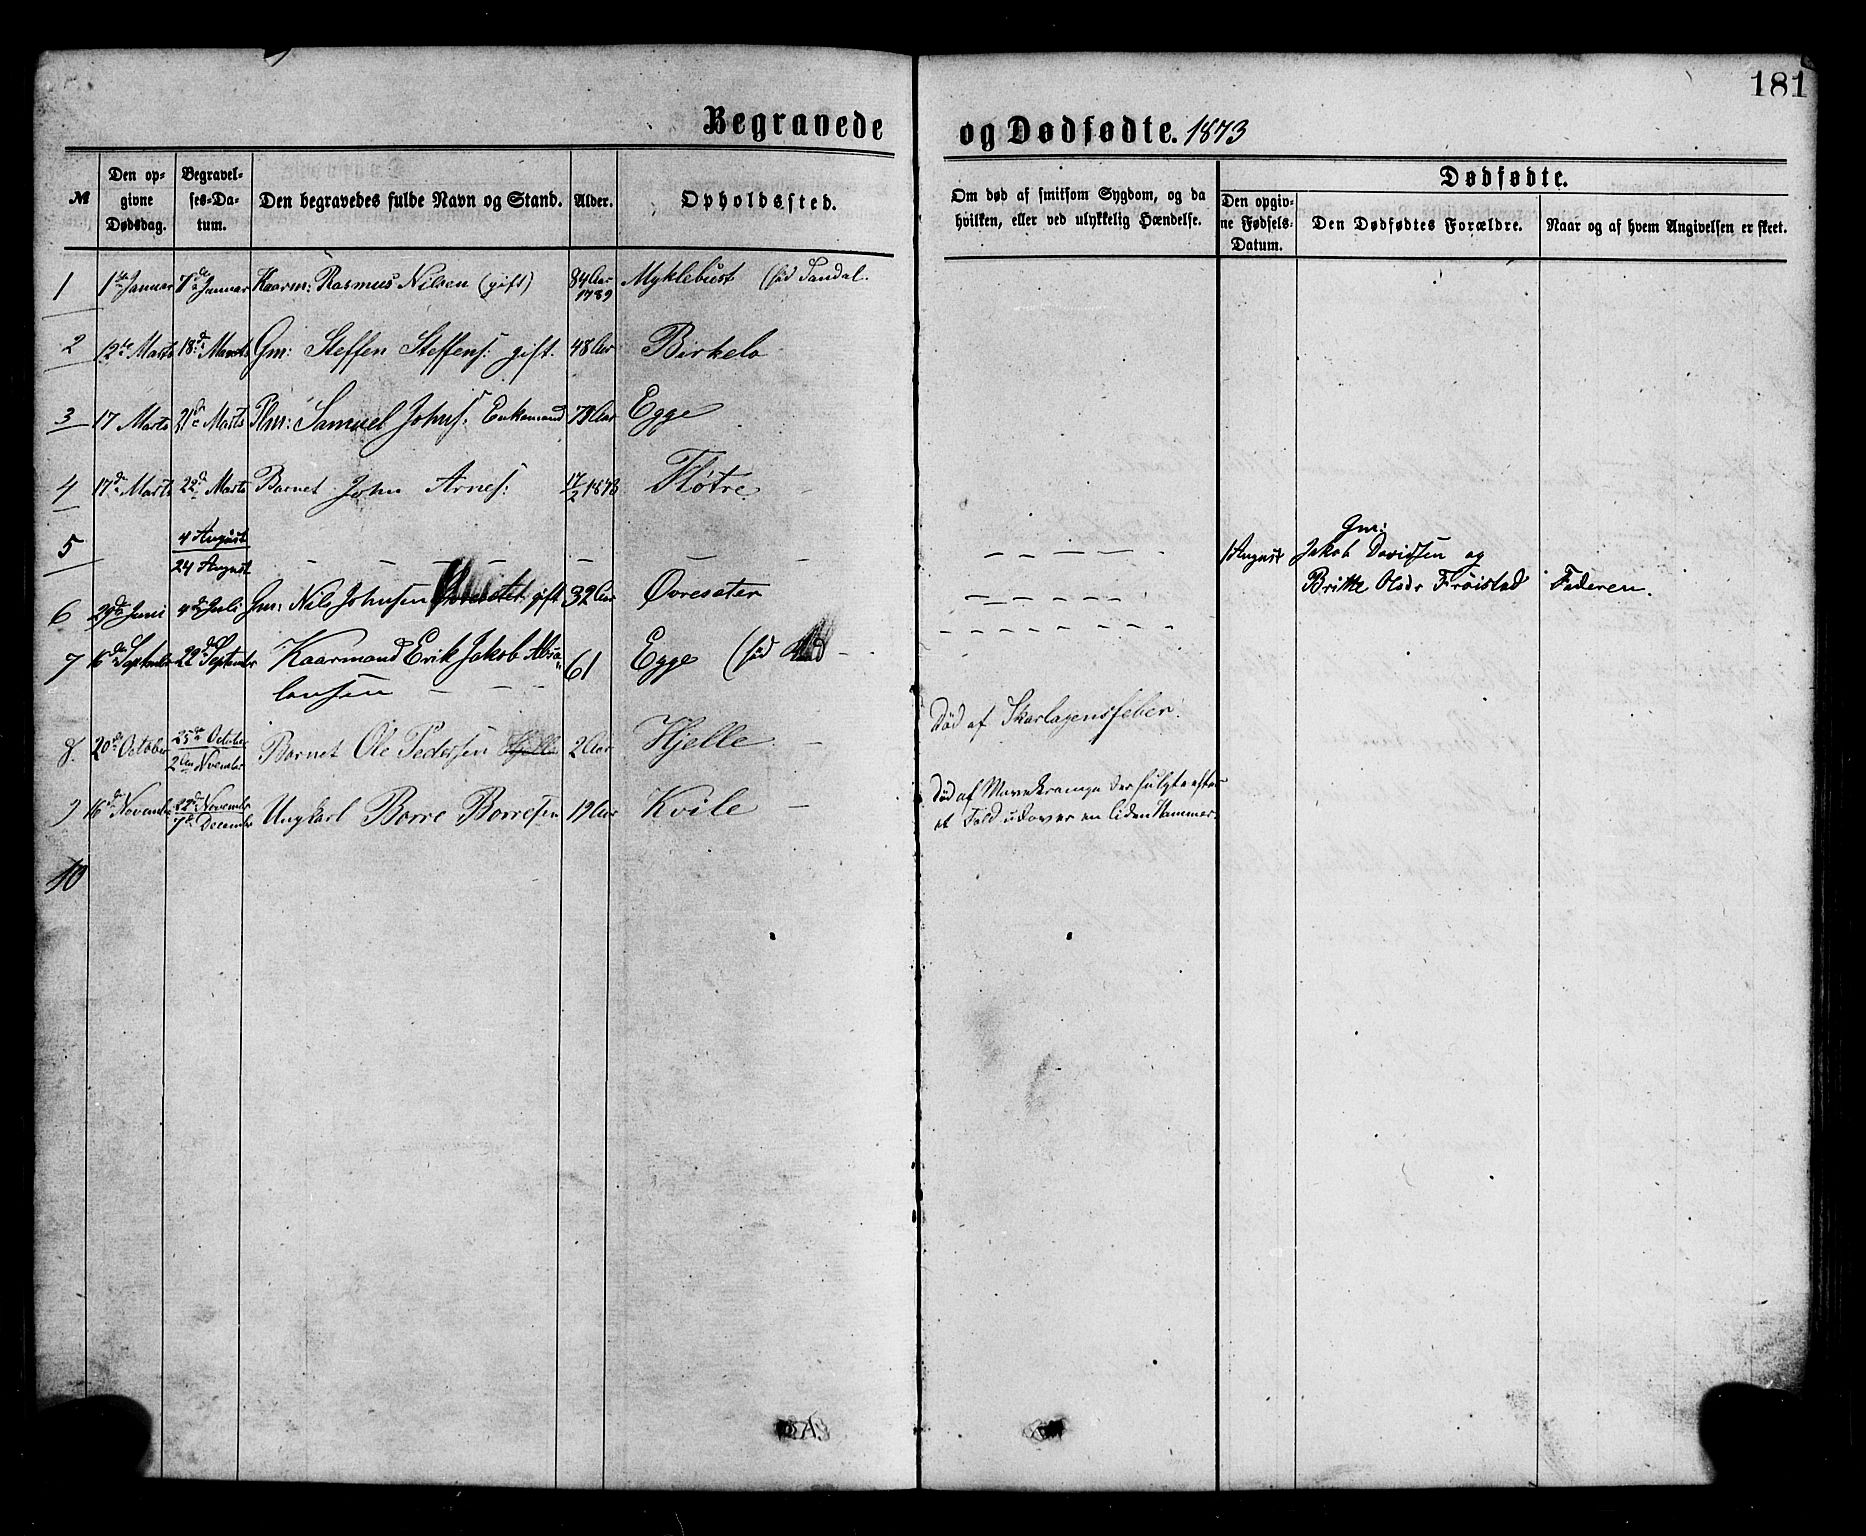 181
Begravede og Dødfødte. 1873
№ Den opgivne Dødsdag. Begravelses-Datum. Den begravedes fulde Navn og Stand. Alder. Opholdssted. Om død af smitsom Sygdom, og da hvilken, eller ved ulykkelig Hændelse. Dødfødte.
Den opgivne Fødsels-Datum. Den Dødfødtes Forældre. Naar og af hvem Angivelsen er skeet.
1 1ste Januar 7de Januar Kaarm: Rasmus Nilsen (gift) 84 Aar 1789 Myklebust (fød Sandal.
2 12te Marts 18de Marts Gm: Steffen Steffens: gift. 48 Aar Birkelo
3 17 Marts 21de Marts Plm: Samuel Johns: Enkemand 79 Aar Egge
4 17de Marts 22de Marts Barnet John Arnes: 17/2 1873 Fløtre
5 4 August 24 August 1 August Gm: Jakob Davidsen og
Britte Olsdr Frøistad Faderen.
6 29de Juni 4de Juli Gm: Nils Johnsen gift 32 Aar Øvresæter
7 16de September 22de September Kaarmand Erik Jakob Absa-
lonsen 61 Egge (fød
8. 20de October 25de October 2den November Barnet Ole Pedersen Hjelle 2 Aar Hjelle Død af Skarlagensfeber.
9 16de November 22de November 7de December Ungkarl Børre Børresen 19 Aar Kvile Død af Mavekrampe der fulgte efter
et Fald udover en liden Hammer.
10